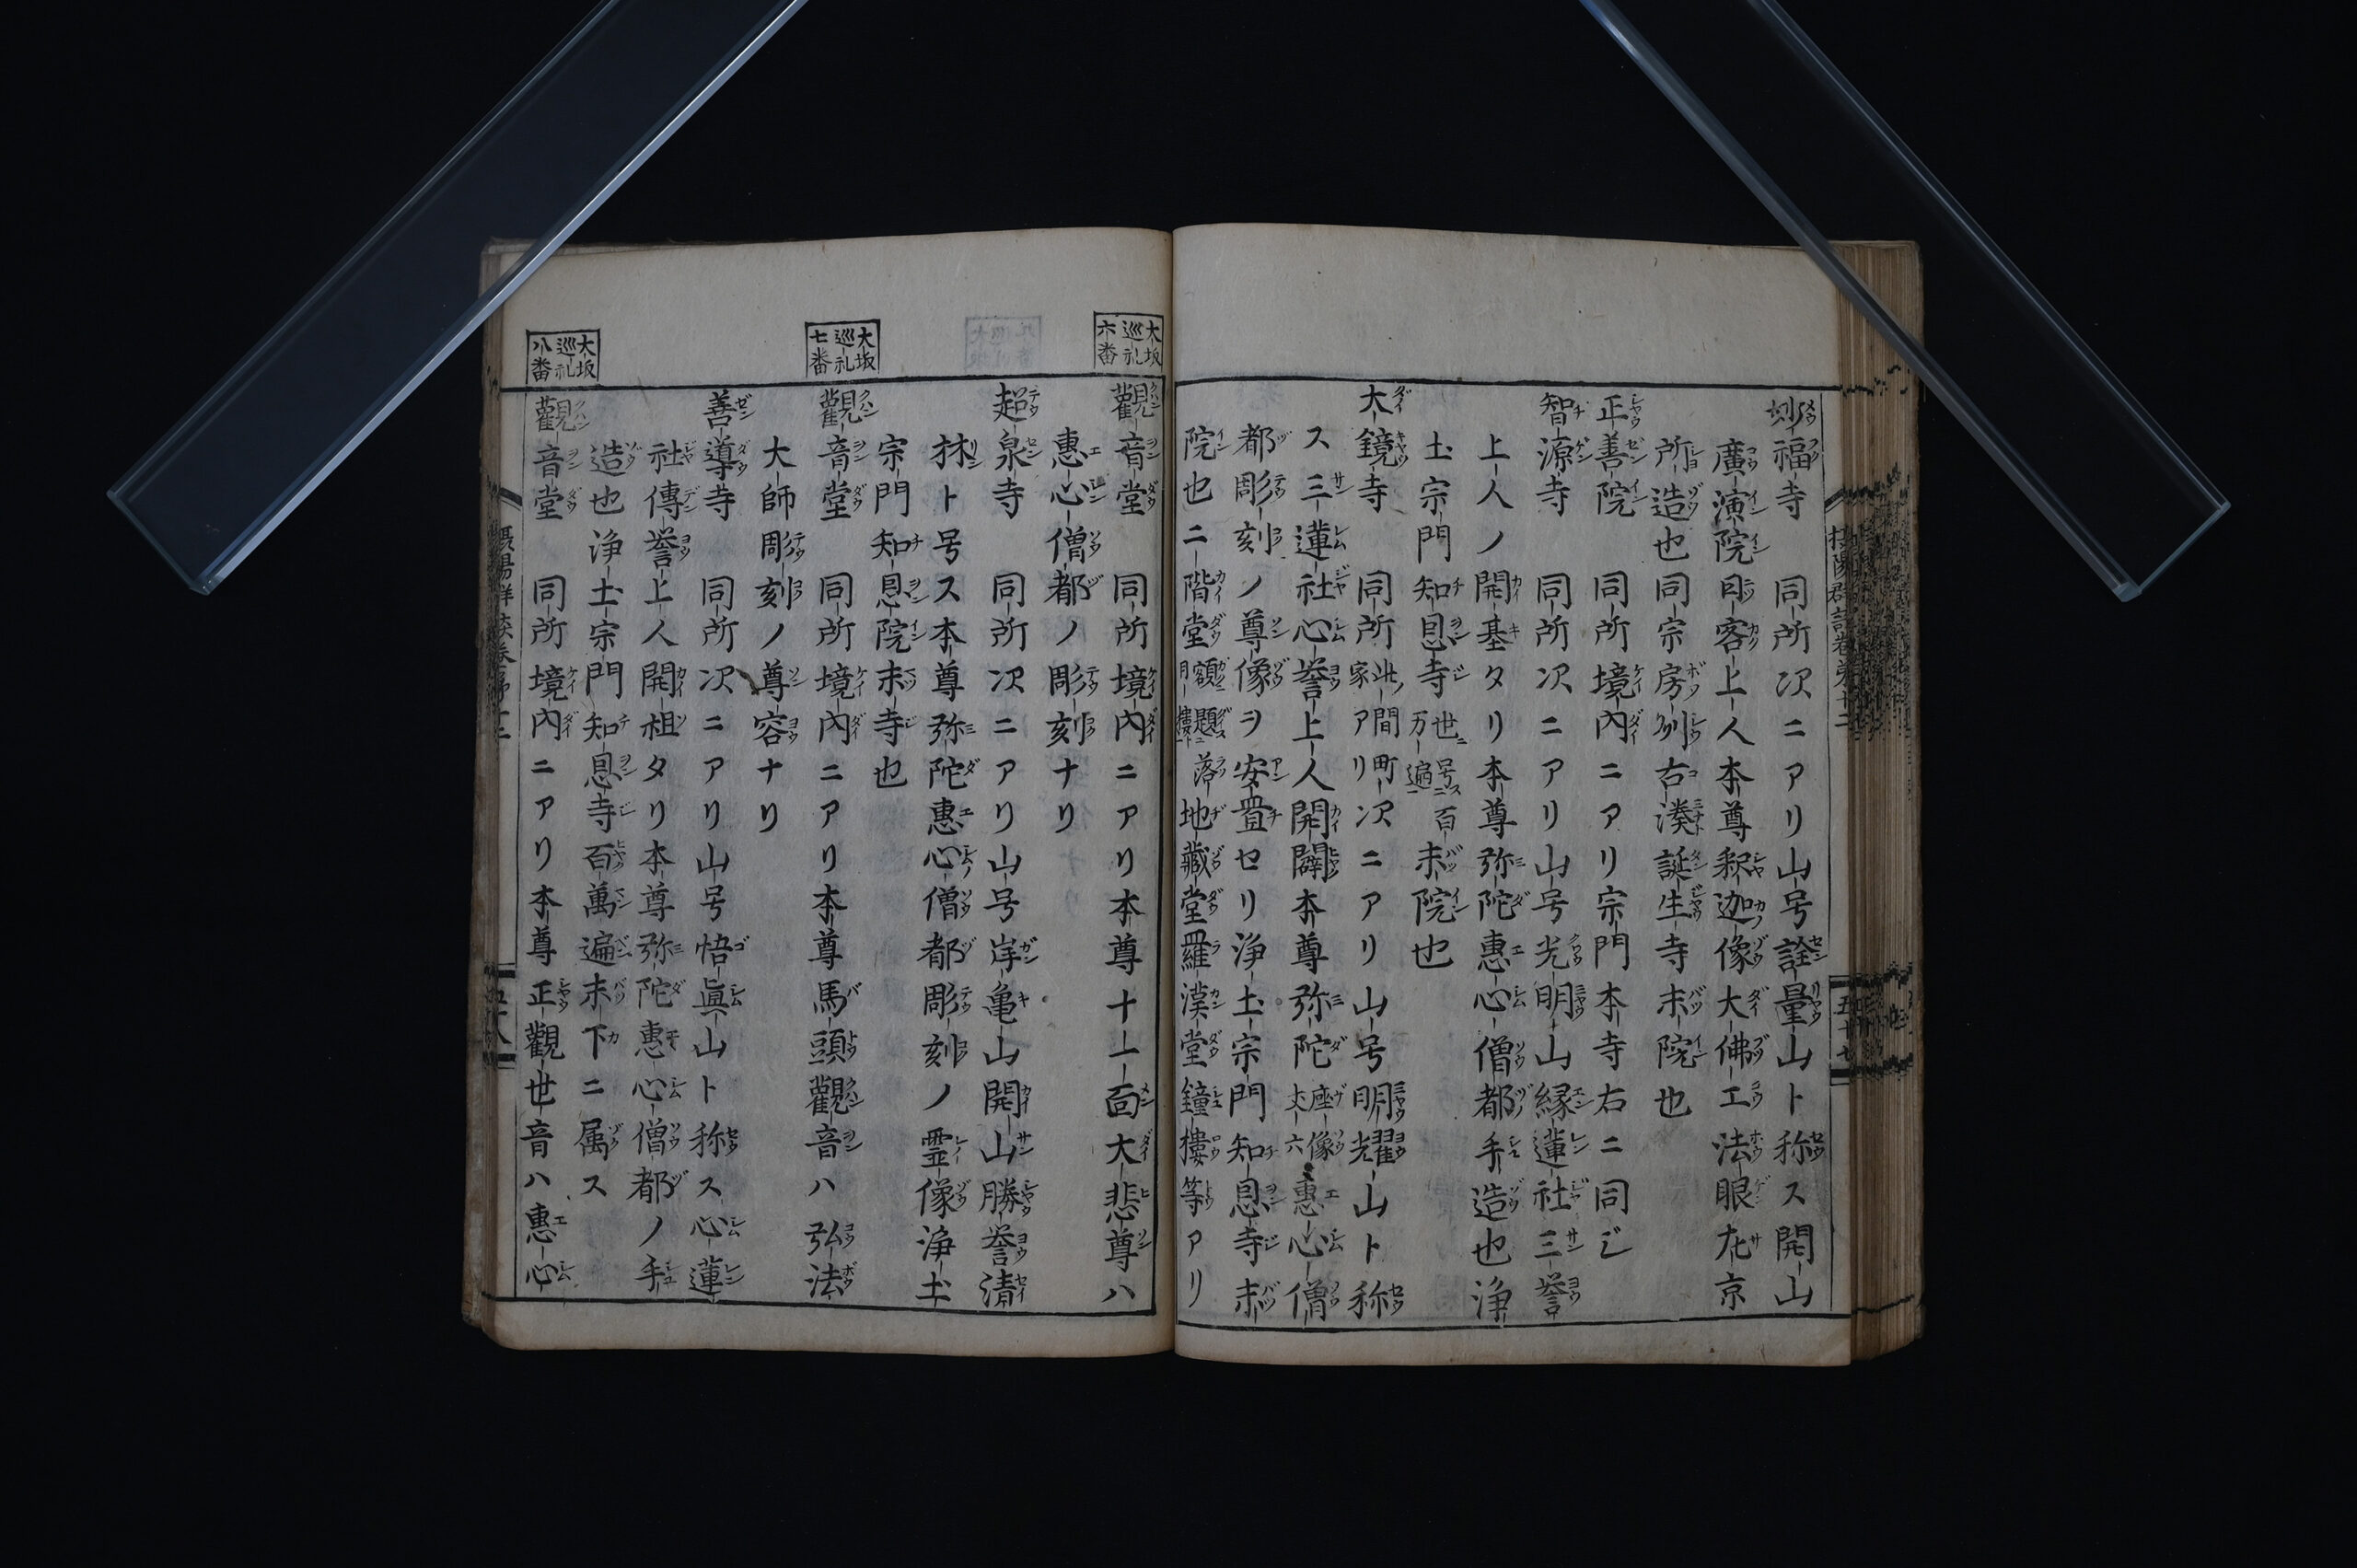 妙福寺 同所次ニアリ山号詮量山ト称ス開山
廣演院日客上人本尊釈迦像大佛工法眼左京
所造也同宗房列右湊誕生寺末院也
正善院 同所境内ニアリ宗門本寺右ニ同じ
智源寺 同所次ニアリ山号光明山縁蓮社三誉
上人ノ開基タリ本尊弥陀惠心僧都手造也浄
土宗門知恩寺世ニ号ス百万遍末院也
大鏡寺 同所此ノ間町家アリ次ニアリ山号明耀山ト称
ス三蓮社心誉上人開闢本尊弥陀座像丈六惠心僧
都彫刻ノ尊像ヲ安置セリ浄土宗門知恩寺末
院也二階堂地藏堂羅漢堂鐘樓等アリ
摂陽群談巻第十二
五十七
大坂巡礼六番
觀音堂 同所境内ニアリ本尊十一面大悲尊ハ
惠心僧都ノ彫刻ナリ
超泉寺 同所次ニアリ山号岸亀山開山勝誉清
林ト号ス本尊弥陀惠心僧都彫刻ノ霊像浄土
宗門知恩院末寺也
大坂巡礼七番
觀音堂 同所境内ニアリ本尊馬頭觀音ハ弘法
大師彫刻ノ尊容ナリ
善導寺 同所次ニアリ山号悟眞山ト称ス心蓮
社傳誉上人開祖タリ本尊弥陀惠心僧都ノ手
造也浄土宗門知恩寺百萬遍末下ニ属ス
大坂巡礼八番
觀音堂 同所境内ニアリ本尊正觀世音ハ惠心
摂陽群談巻第十二
五十八